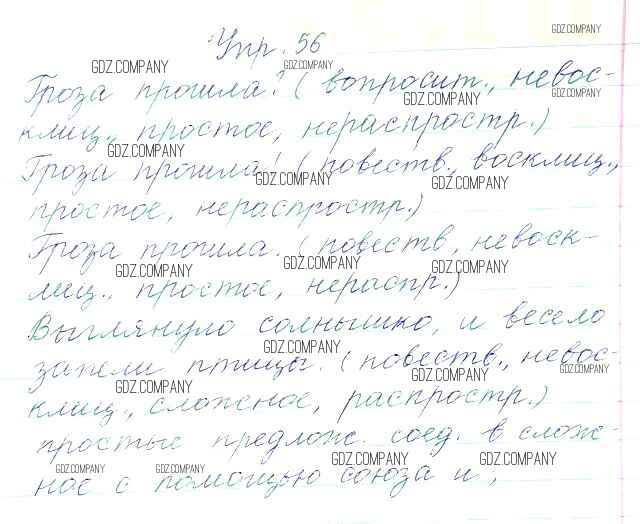 Упр. 56
GDZ.COMPANY
GDZ.COMPANY GDZ.COMPANY
Гроза прошла? (вопросит., невос-
GDZ.COMPANY GDZ.COMPANY
клиц., простое, нераспростр.)
GDZ.COMPANY
Гроза прошла! (повеств., восклиц.,
GDZ.COMPANY GDZ.COMPANY
простое, нераспростр.)
Гроза прошла. (повеств, невоск-
GDZ.COMPANY GDZ.COMPANY GDZ.COMPANY
лиц., простое, нераспр.)
Выглянуло солнышко, и весело
GDZ.COMPANY
запели птицы. (повеств., невос-
GDZ.COMPANY GDZ.COMPANY GDZ.COMPANY
клиц., сложное, распростр.)
простые предлож. соед. в слож-
GDZ.COMPANY GDZ.COMPANY GDZ.COMPANY GDZ.COMPANY
ное с помощью союза и,